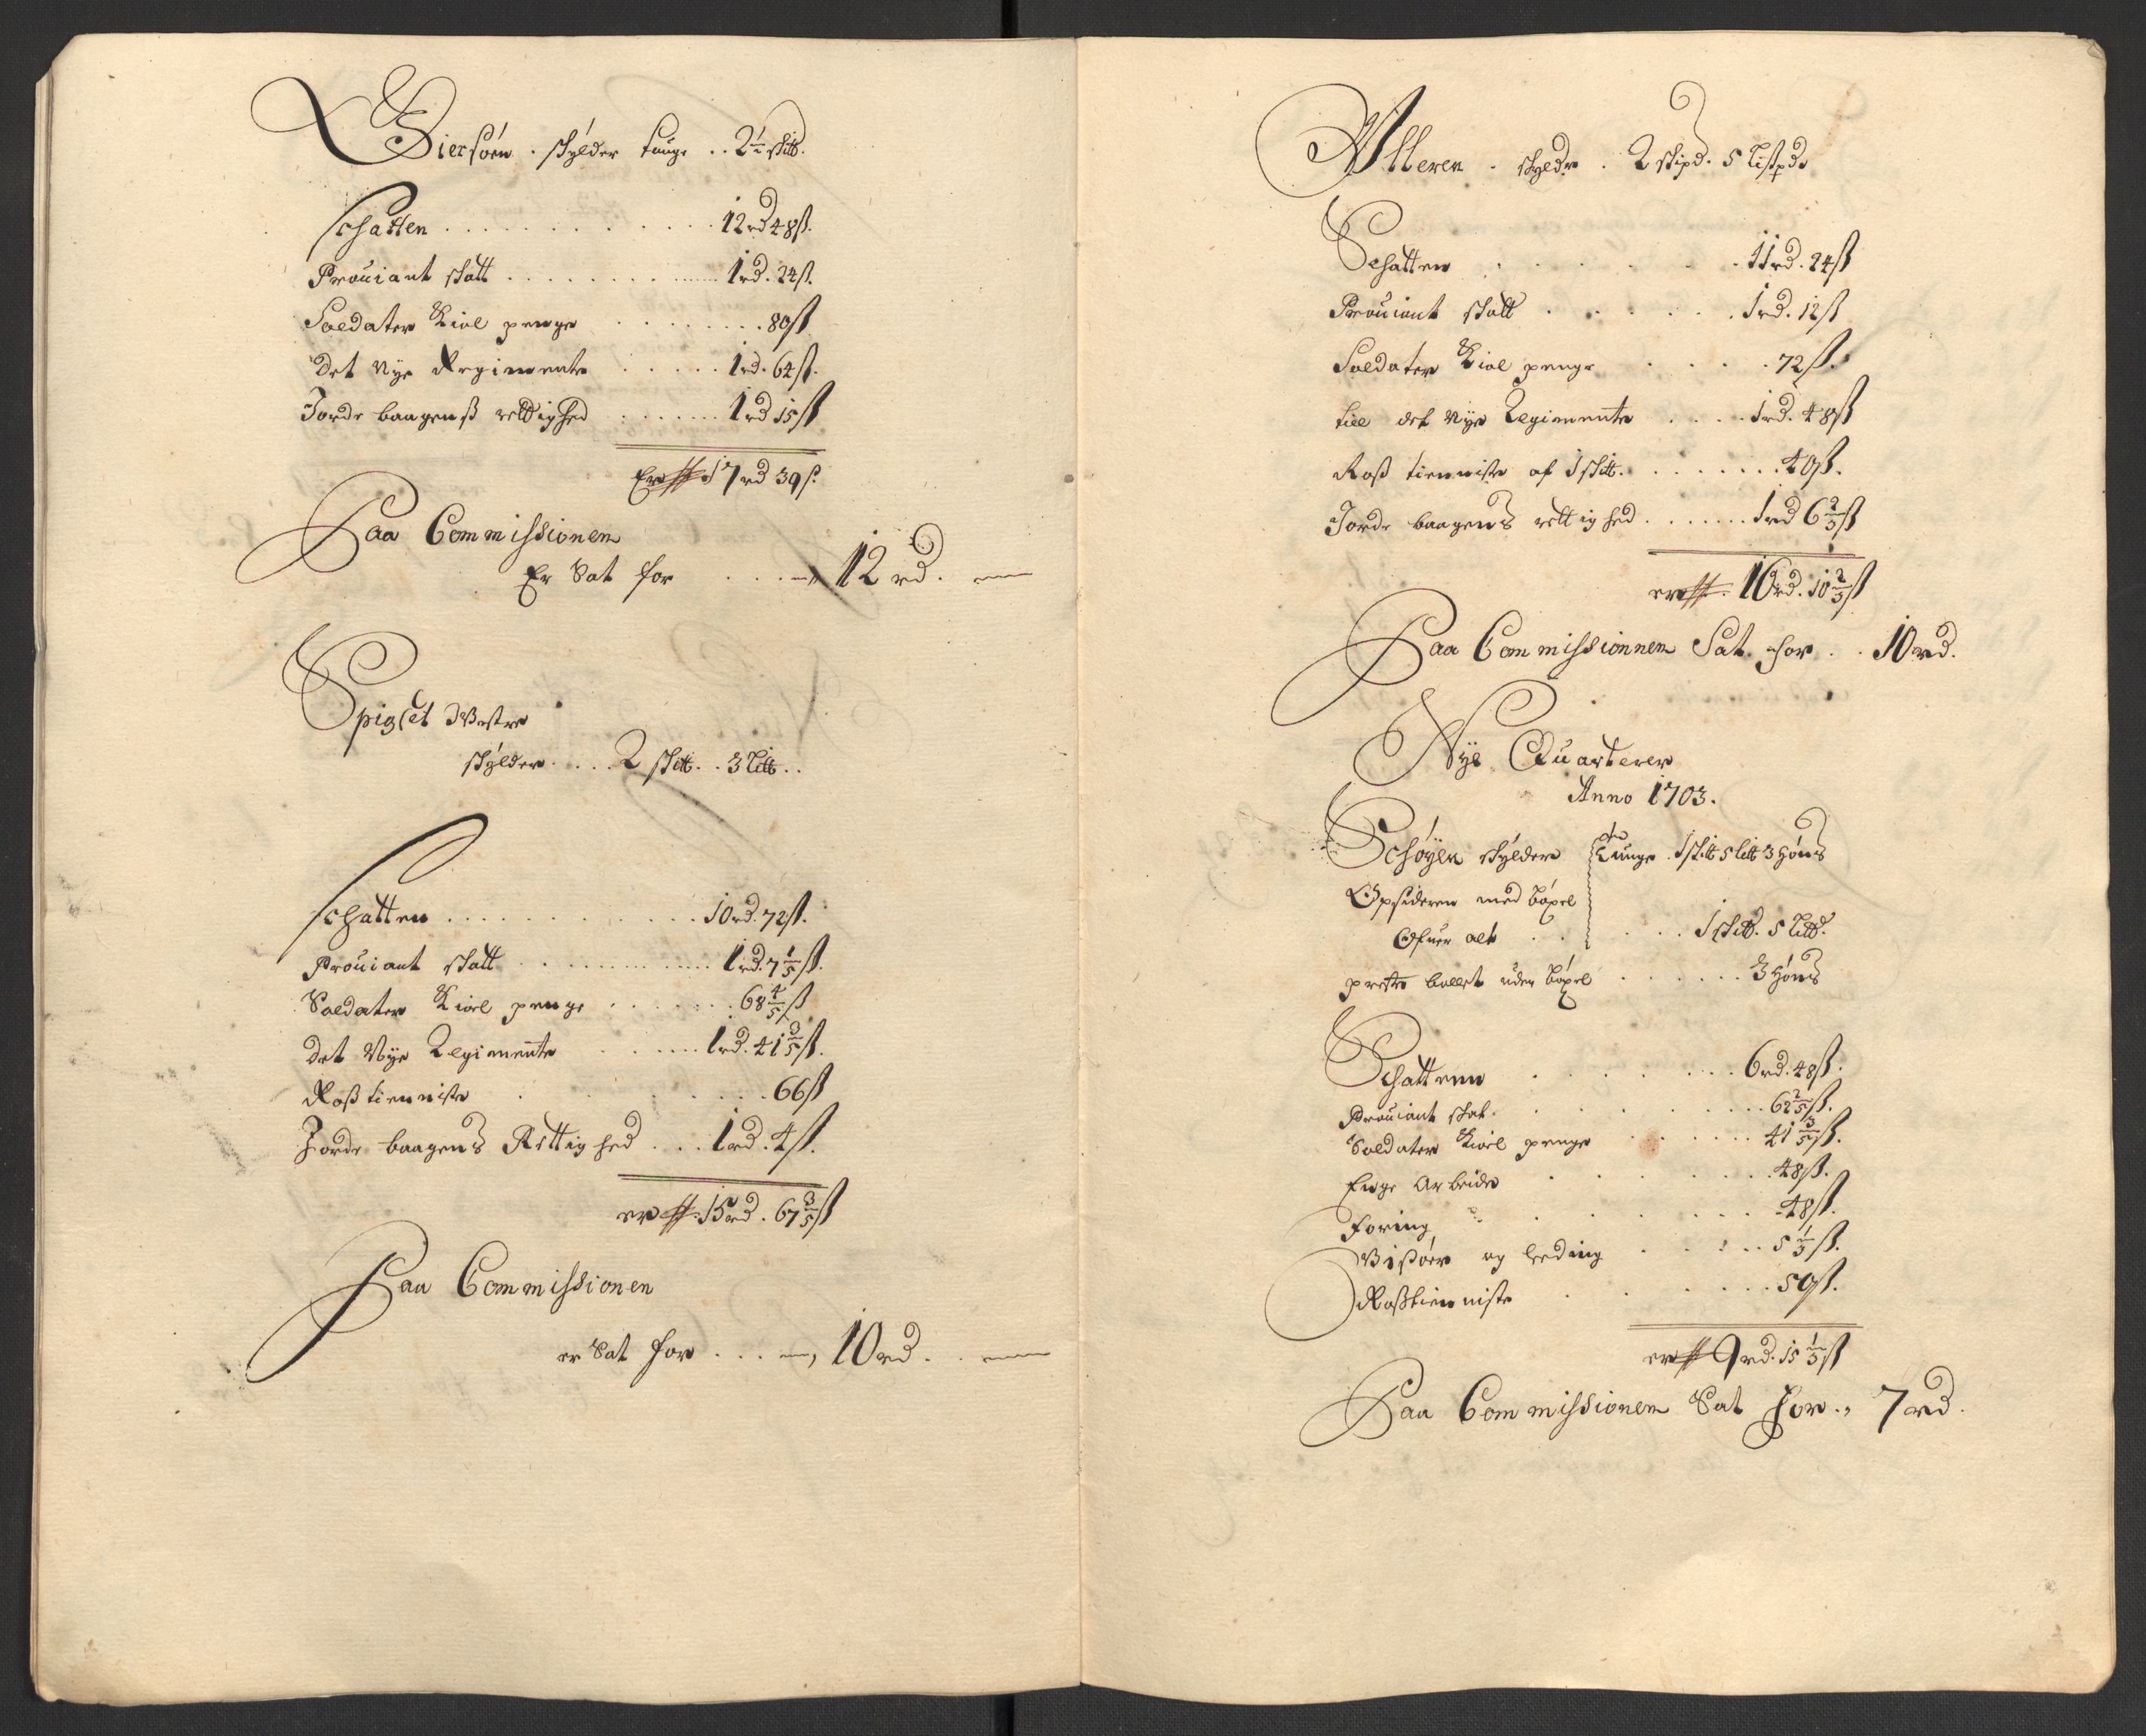 Biersøen . schylder tunge .. 2½ sk℔.
Schatten . . . . . . 12 rd 48 ß.
Prouiant skatt . . . . . . 1 rd. 24 ß.
Soldater Kiol penge . . . . . . 80 ß
Det Nye Regimente . . . . . 1 rd. 64 ß.
Jorde baagenß rettighed . . . . . . 1 rd 15 ß
Er 17 rd 39 ß.
Paa Commissionen
Er Sat for . . . 12 rd.
Spigset Westre
skylder . . . . 2 sk℔. . 3 li℔ . .
Schatten . . . . . . 10 rd. 72 ß.
Prouiant skatt . . . . . . 1 rd. 7 1/5 ß.
Soldater Kiol penge . . . . . . 68 4/5 ß
Det Nye Regimente . . . . . . 1 rd. 41 3/5 ß.
Roß tienniste . . . . . . 66 ß
Jorde baagens Rettighed . . . 1 rd. 4 ß.
er 15 rd. 67 3/5 ß
Paa Commissionen
er Sat for . . . 10 rd. . .
Ulleren . skyldr . 2 skipd. 5 Lispde
Schatten . . . . . . 11 rd. 24 ß
Prouiant skatt . . . . . . 1 rd. 12 ß
Soldater Kiol penge . . . . 72 ß.
till det Nye Regimente . . . . 1 rd. 48 ß
Roß tienniste af 1 sk℔. . . . . . . 40 ß.
Jorde baagens rettighed . . . . . . 1 rd 6 2/3 ß
er 16 rd. 10 2/3 ß
Paa Commissionnen Sat for . . 10 rd.
Nye Quarterer
Anno 1703.
Schøyen skylder tunge 1 sk℔ 5 li℔ 3 Høns
Opsideren med bøxel
Ofuer alt . . . . . 1 sk℔. 5 li℔.
preste bollet uden bøxel . . . . . . 3 Høns
Schattenn . . . . . . 6 rd. 48 ß.
Prouiant skat . . . . . . 62 2/5 ß.
Soldater Kiol penge . . . . . . 41 3/5 ß.
Enge Arbeide . . . . . . 48 ß.
Foring . . . . . . 48 ß.
Wißøer og leeding . . . . . 5 1/3 ß.
Roßtienniste . . . . . . 50 ß.
er 9 rd. 15 1/3 ß
Paa Commissionen Sat for . , 7 rd.